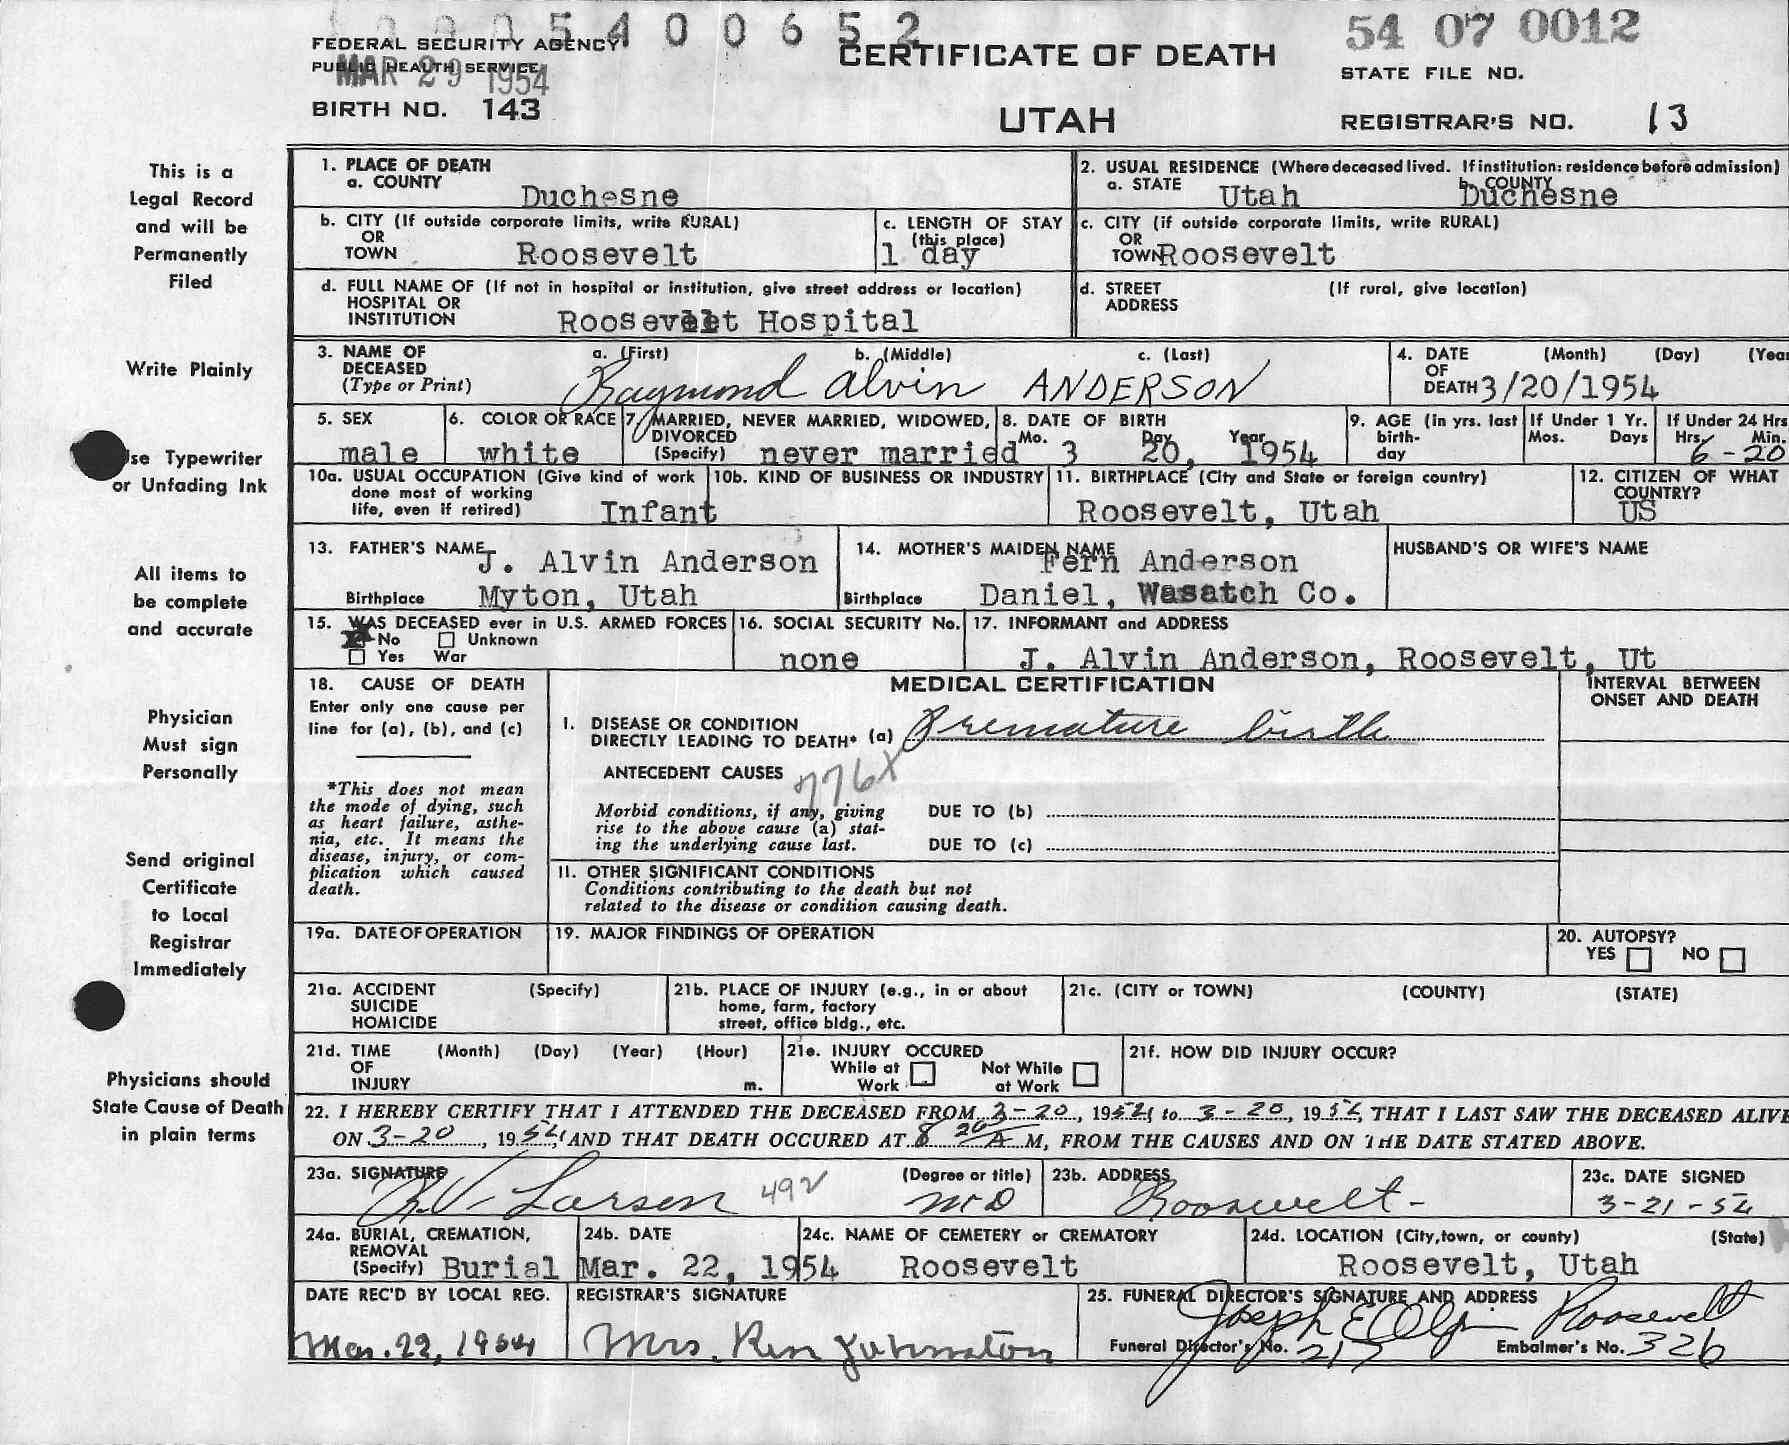 0005400652
FEDERAL SECURITY AGENCY
PUBLIC HEALTH SERVICE
MAR 29 1954
BIRTH NO. 143
CERTIFICATE OF DEATH
UTAH
54 07 0012
STATE FILE NO.
REGISTRAR'S NO. 13
This is a
Legal Record
and will be
Permanently
Filed
Write Plainly
Use Typewriter
or Unfading Ink
All items to
be complete
and accurate
Physician
Must sign
Personally
Send original
Certificate
to Local
Registrar
Immediately
Physicians should
State Cause of Death
in plain terms
1. PLACE OF DEATH
a. COUNTY Duchesne
2. USUAL RESIDENCE (Where deceased lived. If institution: residence before admission)
a. STATE Utah b. COUNTY Duchesne
b. CITY (If outside corporate limits, write RURAL)
OR
TOWN Roosevelt
c. LENGTH OF STAY
(this place)
1 day
c. CITY (if outside corporate limits, write RURAL)
OR
TOWN Roosevelt
d. FULL NAME OF (If not in hospital or institution, give street address or location)
HOSPITAL OR
INSTITUTION Roosevelt Hospital
d. STREET (If rural, give location)
ADDRESS
3. NAME OF DECEASED
(Type or Print)
a. (First) b. (Middle) c. (Last)
Raymond Alvin ANDERSON
4. DATE (Month) (Day) (Year
OF
DEATH 3/20/1954
5. SEX
male
6. COLOR OR RACE
white
7. MARRIED, NEVER MARRIED, WIDOWED,
DIVORCED
(Specify) never married
8. DATE OF BIRTH
Mo. Day Year
3 20, 1954
9. AGE (in yrs. last
birth-
day
If Under 1 Yr.
Mos. Days
If Under 24 Hrs
Hrs. Min.
6 - 20
10a. USUAL OCCUPATION (Give kind of work
done most of working
life, even if retired) Infant
10b. KIND OF BUSINESS OR INDUSTRY
11. BIRTHPLACE (City and State or foreign country)
Roosevelt, Utah
12. CITIZEN OF WHAT
COUNTRY?
US
13. FATHER'S NAME
J. Alvin Anderson
Birthplace Myton, Utah
14. MOTHER'S MAIDEN NAME
Fern Anderson
Birthplace Daniel, Wasatch Co.
HUSBAND'S OR WIFE'S NAME
15. WAS DECEASED ever in U.S. ARMED FORCES
No Unknown
Yes War
16. SOCIAL SECURITY No.
none
17. INFORMANT and ADDRESS
J. Alvin Anderson, Roosevelt, Ut
18. CAUSE OF DEATH
Enter only one cause per
line for (a), (b), and (c)
*This does not mean
the mode of dying, such
as heart failure, asthe-
nia, etc. It means the
disease, injury, or com-
plication which caused
death.
MEDICAL CERTIFICATION
INTERVAL BETWEEN
ONSET AND DEATH
I. DISEASE OR CONDITION
DIRECTLY LEADING TO DEATH* (a) Premature birth
ANTECEDENT CAUSES
776X
Morbid conditions, if any, giving
rise to the above cause (a) stat-
ing the underlying cause last.
DUE TO (b)
DUE TO (c)
11. OTHER SIGNIFICANT CONDITIONS
Conditions contributing to the death but not
related to the disease or condition causing death.
19a. DATE OF OPERATION
19. MAJOR FINDINGS OF OPERATION
20. AUTOPSY?
YES NO
21a. ACCIDENT (Specify)
SUICIDE
HOMICIDE
21b. PLACE OF INJURY (e.g., in or about
home, farm, factory
street, office bldg., etc.
21c. (CITY or TOWN) (COUNTY) (STATE)
21d. TIME (Month) (Day) (Year) (Hour)
OF
INJURY m.
21e. INJURY OCCURED
While at Work Not While at Work
21f. HOW DID INJURY OCCUR?
22. I HEREBY CERTIFY THAT I ATTENDED THE DECEASED FROM 3-20, 1954 to 3-20, 1954, THAT I LAST SAW THE DECEASED ALIVE
ON 3-20, 1954, AND THAT DEATH OCCURED AT 8 20 A M, FROM THE CAUSES AND ON THE DATE STATED ABOVE.
23a. SIGNATURE (Degree or title)
Larsen 492 MD
23b. ADDRESS
Roosevelt-
23c. DATE SIGNED
3-21-54
24a. BURIAL, CREMATION,
REMOVAL
(Specify) Burial
24b. DATE
Mar. 22, 1954
24c. NAME OF CEMETERY or CREMATORY
Roosevelt
24d. LOCATION (City, town, or county) (State)
Roosevelt, Utah
DATE REC'D BY LOCAL REG.
Mar. 22, 1954
REGISTRAR'S SIGNATURE
Mrs. Ken Johnston
25. FUNERAL DIRECTOR'S SIGNATURE AND ADDRESS
Joseph E Roosevelt
Funeral Director's No. 217 Embalmer's No. 326